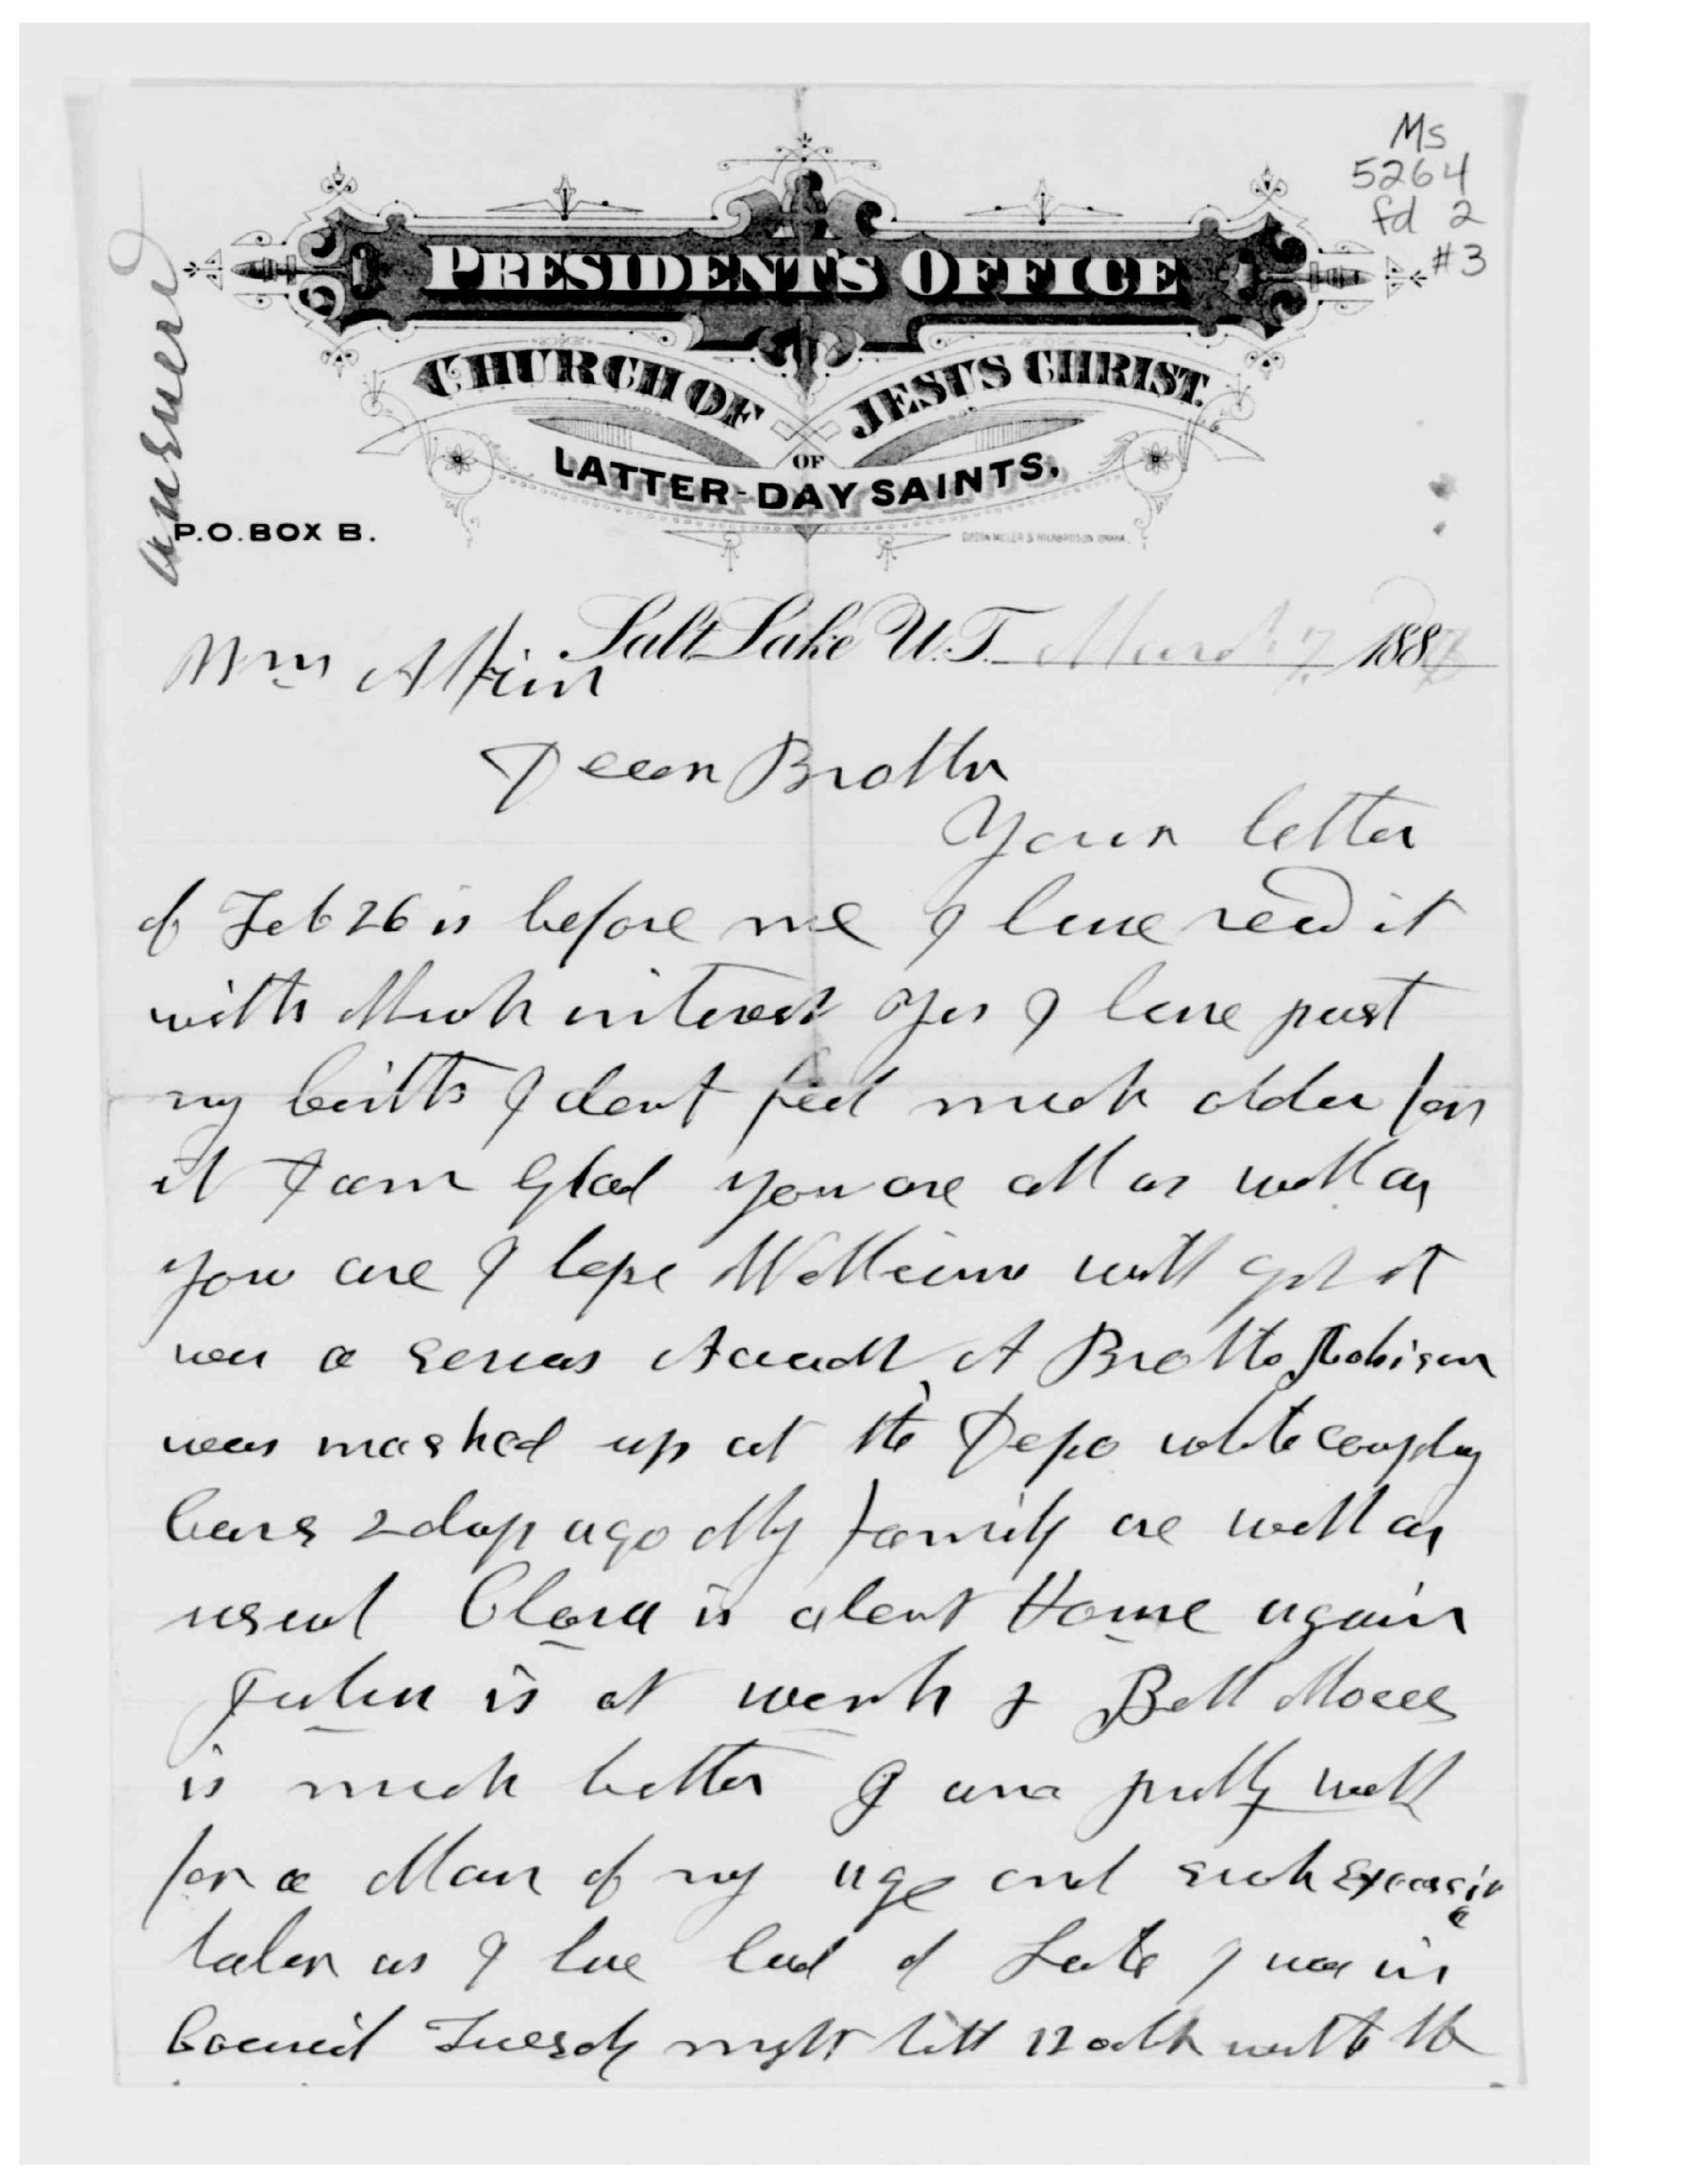 Ms
5264
fd 2
#3
answered
PRESIDENT'S OFFICE
CHURCH OF JESUS CHRIST.
OF
LATTER-DAY SAINTS.
P.O. BOX B.
Salt Lake U.T. March 7. 188
Wm Atkin
Dear Brother
Your letter
of Feb 26 is before me I have read it
with Much interest Yes I have past
my birth I dont feel much older for
it I am Glad you are all as well as
you are I hope William will get it
was a serious Accedt A Brother Robison
was mashed up at the Depo while coupling
Cars 2 days ago My family are well as
usual Clara is about Home again
is at work & Bell Moses
is much better I am pretty well
for a Man of my age and such Excessive
labor as I have had of Late I was in
Council Tuesdy night till 12 oclk with the